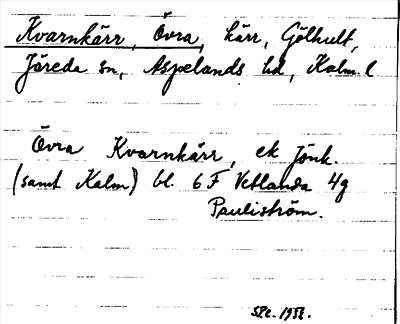 Kvarnkärr, Övra, kärr, Gölhult,
Järeda sn, Aspelands hd, Kalm. l
Övra Kvarnkärr, ek Jönk.
(samt Kalm) bl. 6 F Vetlanda 4g
Pauliström.
1952.